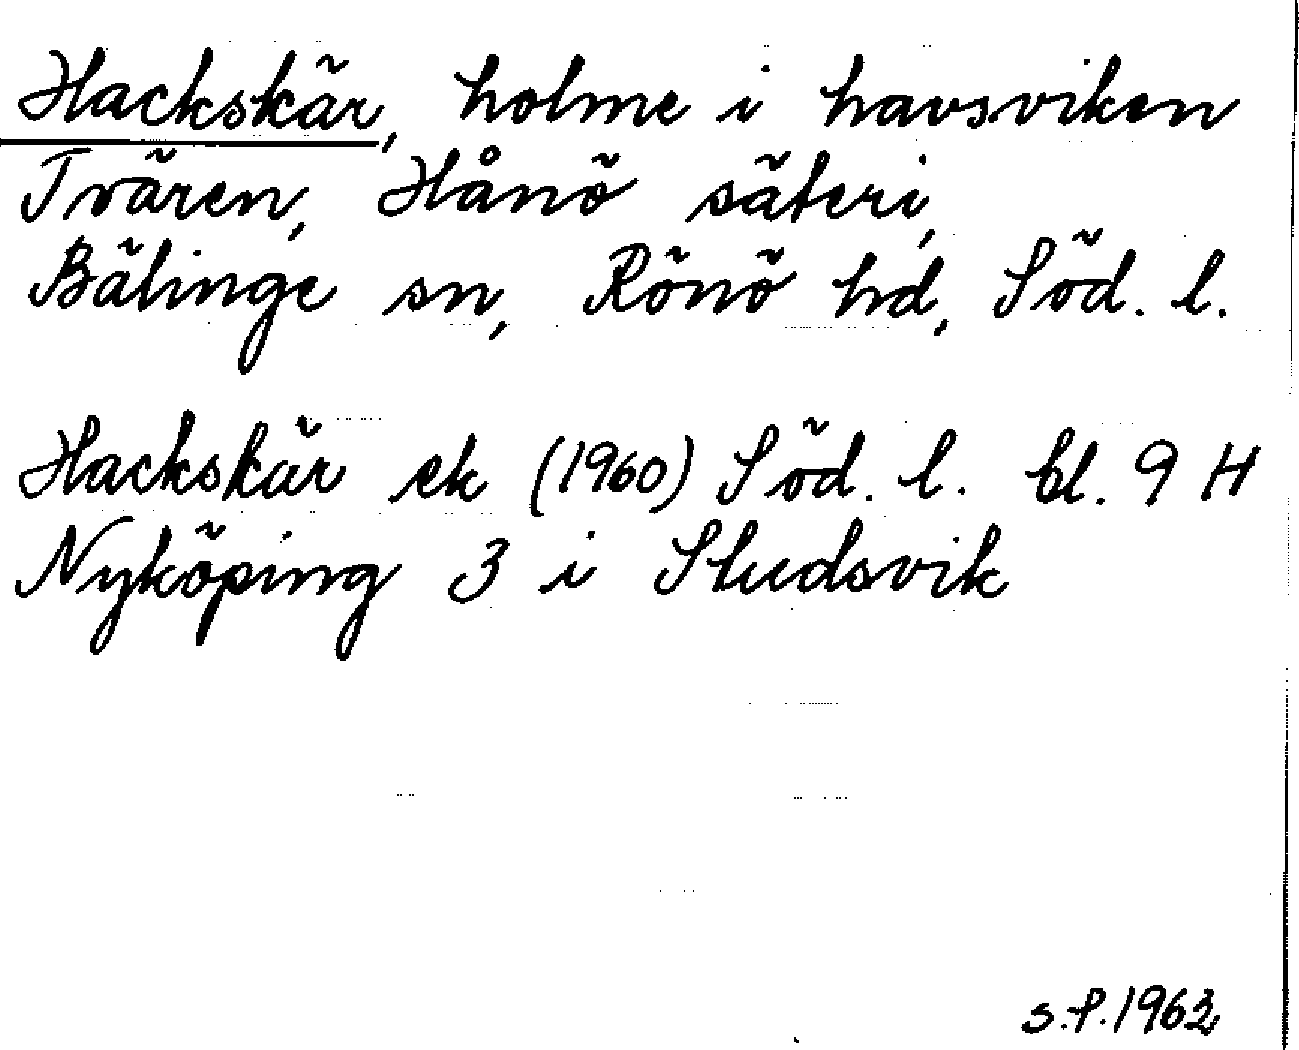 Hackskär, holme i havsviken
Tvären, Hånö säteri,
Bälinge sn, Rönö hd, Söd. l.
Hackskär ek (1960) Söd. l. bl. 9 H
Nyköping 3 i Studsvik
S.P. 1963